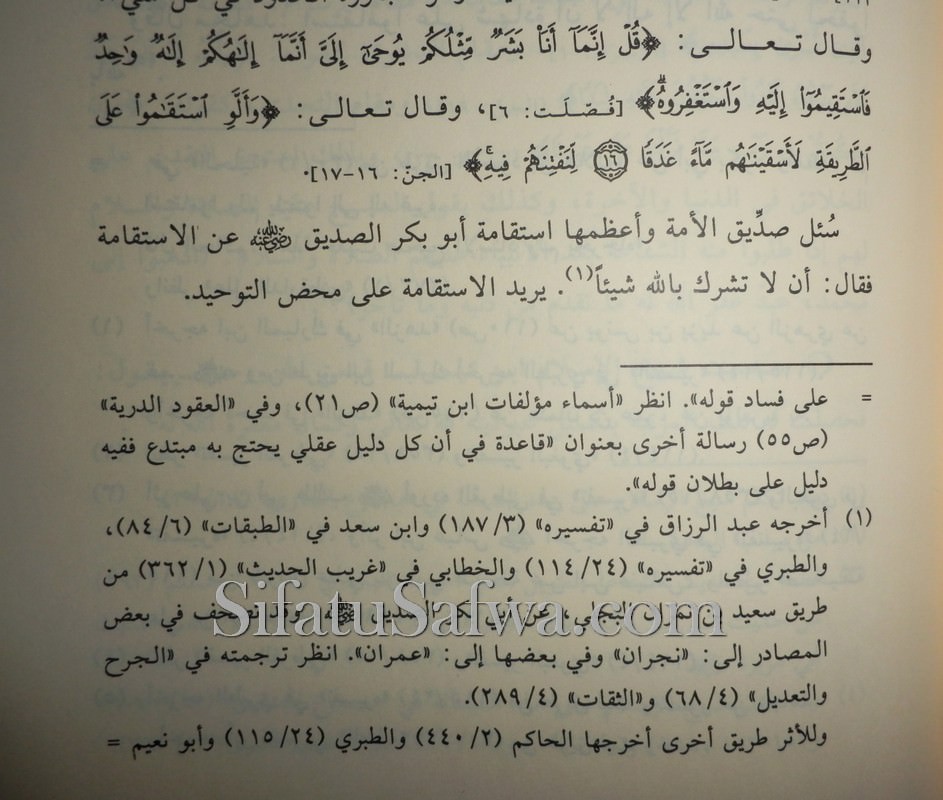 وقال تعالى: ﴿قُلْ إِنَّمَآ أَنَا۠ بَشَرٌ مِّثْلُكُمْ يُوحَىٰٓ إِلَىَّ أَنَّمَآ إِلَٰهُكُمْ إِلَٰهٌ وَٰحِدٌ
فَٱسْتَقِيمُوٓا۟ إِلَيْهِ وَٱسْتَغْفِرُوهُۗ﴾ [فُصِّلَت: ٦]، وقال تعالى: ﴿وَأَلَّوِ ٱسْتَقَٰمُوا۟ عَلَى
ٱلطَّرِيقَةِ لَأَسْقَيْنَٰهُم مَّآءً غَدَقًا ١٦ لِّنَفْتِنَهُمْ فِيهِۚ﴾ [الجنّ: ١٦-١٧].
سُئل صدِّيق الأمة وأعظمها استقامة أبو بكر الصديق رضي الله عنه عن الاستقامة
فقال: أن لا تشرك بالله شيئاً(١). يريد الاستقامة على محض التوحيد.
= على فساد قوله». انظر «أسماء مؤلفات ابن تيمية» (ص٢١)، وفي «العقود الدرية»
(ص٥٥) رسالة أخرى بعنوان «قاعدة في أن كل دليل عقلي يحتج به مبتدع ففيه
دليل على بطلان قوله».
(١) أخرجه عبد الرزاق في «تفسيره» (٣/ ١٨٧) وابن سعد في «الطبقات» (٦/ ٨٤)،
والطبري في «تفسيره» (٢٤/ ١١٤) والخطابي في «غريب الحديث» (١/ ٣٦٢) من
طريق سعيد بن نمران البجلي، عن أبي بكر الصديق رضي الله عنه. وقد تصحف في بعض
SifatuSafwa.com
المصادر إلى: «نجران» وفي بعضها إلى: «عمران». انظر ترجمته في «الجرح
والتعديل» (٤/ ٦٨) و«الثقات» (٤/ ٢٨٩).
وللأثر طريق أخرى أخرجها الحاكم (٢/ ٤٤٠) والطبري (٢٤/ ١١٥) وأبو نعيم =